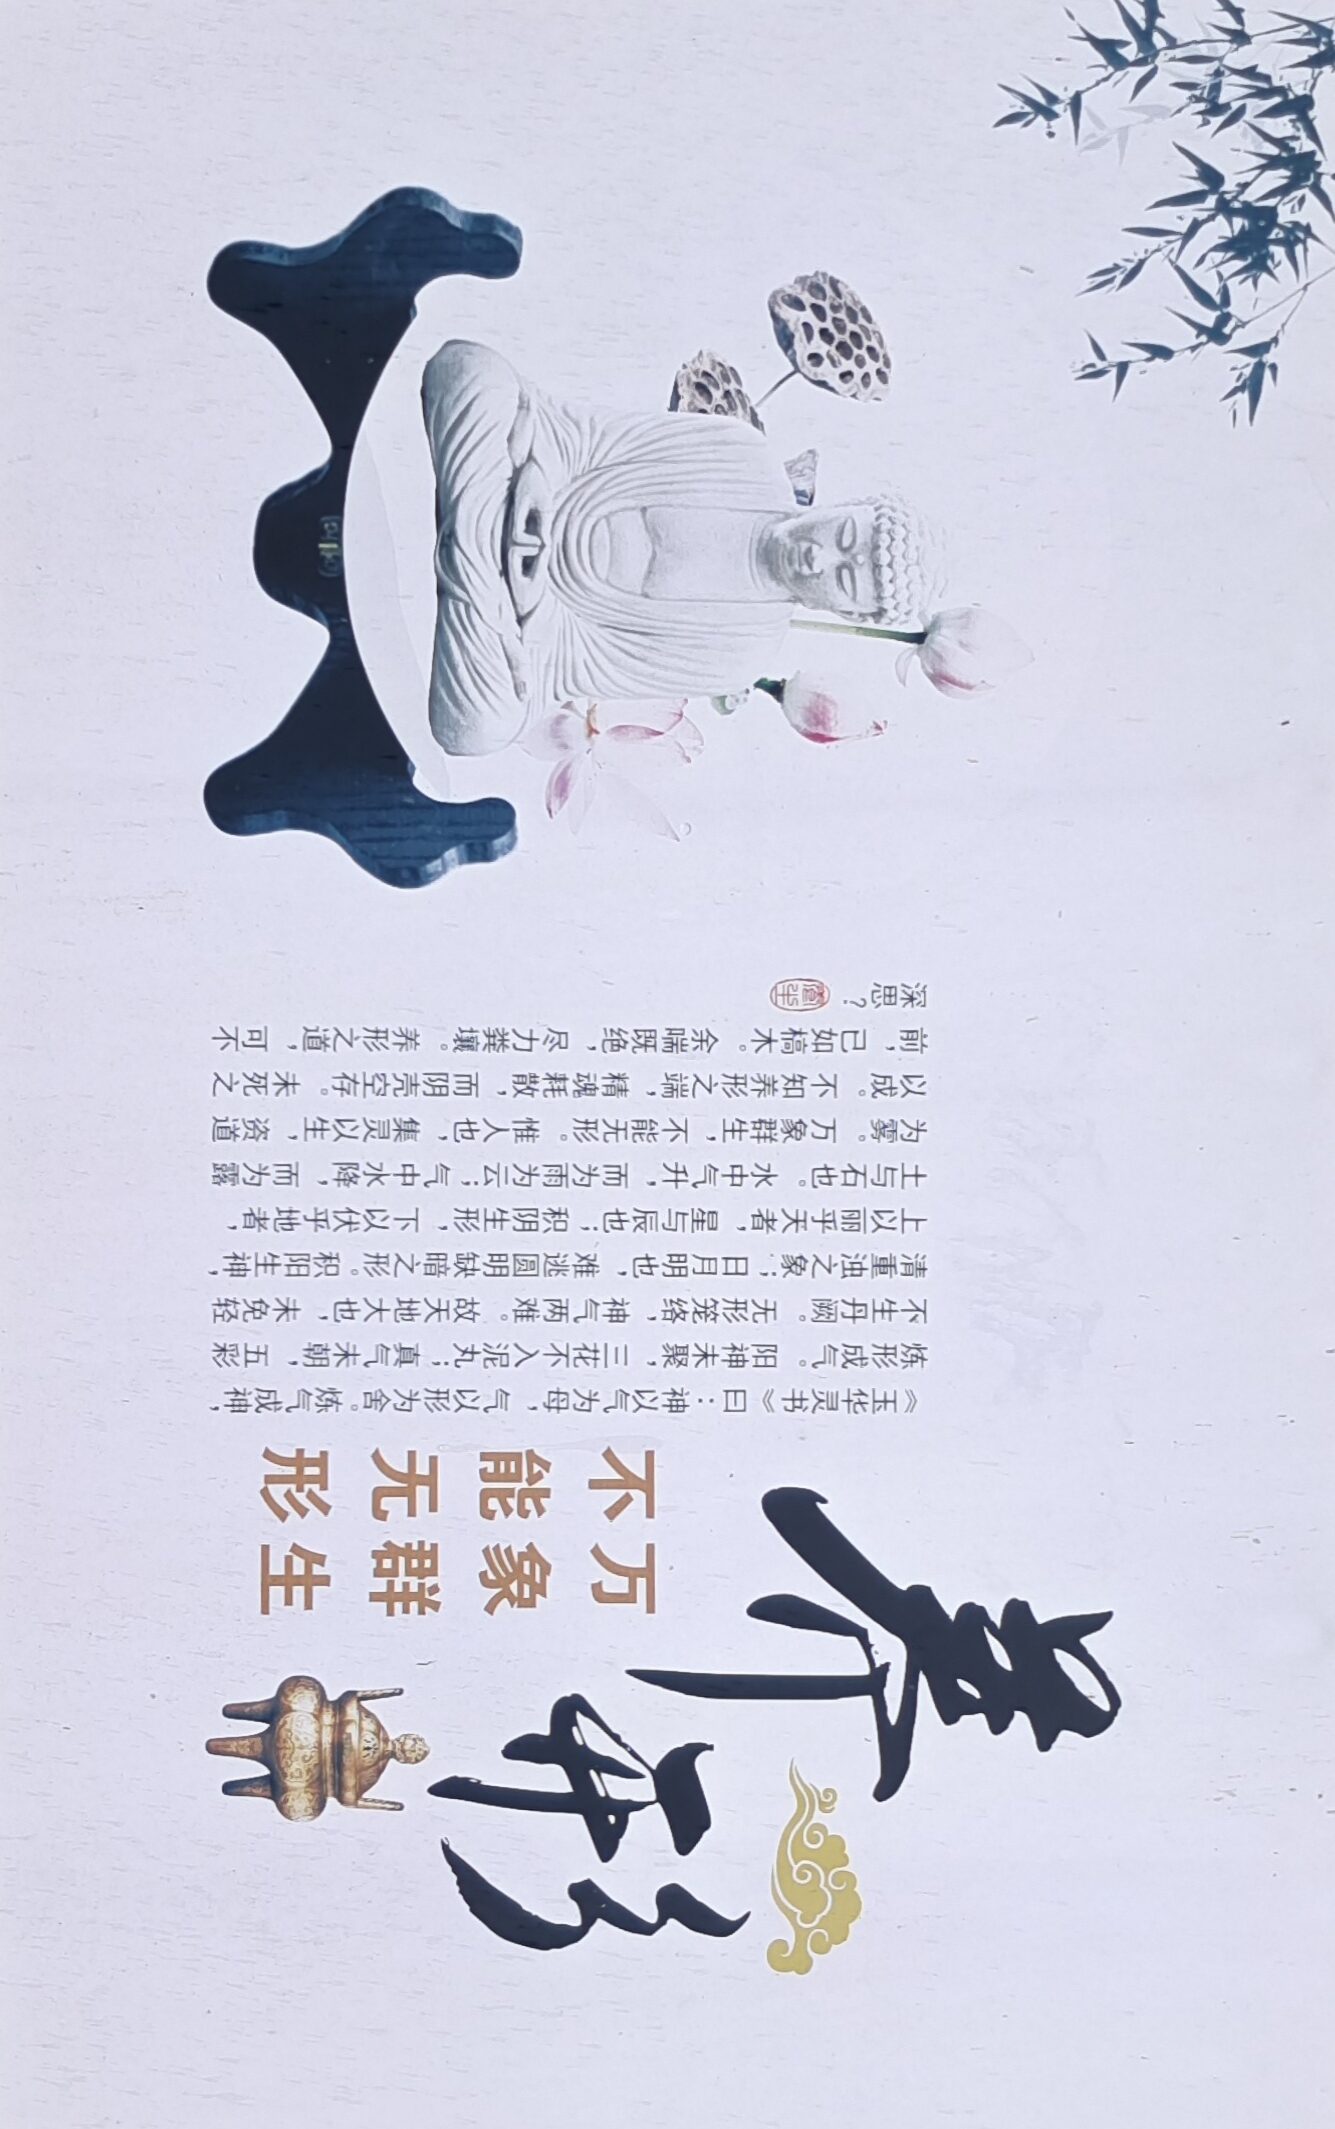 养形
万象群生
不能无形
《玉华灵书》曰：神以气为母，气以形为舍。炼气成神，
炼形成气。阳神未聚，三花不入泥丸；真气未朝，五彩
不生丹阙。无形笼络，神气两难。故天地大也，未免轻
清重浊之象；日月明也，难逃圆明缺暗之形。积阳生神，
上以丽乎天者，星与辰也；积阴生形，下以伏乎地者，
土与石也。水中气升，而为雨为云；气中水降，而为露
为雾。万象群生，不能无形。惟人也，集灵以生，资道
以成。不知养形之端，精魂耗散，而阴壳空存。未死之
前，已如槁木。余喘既绝，尽力粪壤。养形之道，可不
深思？